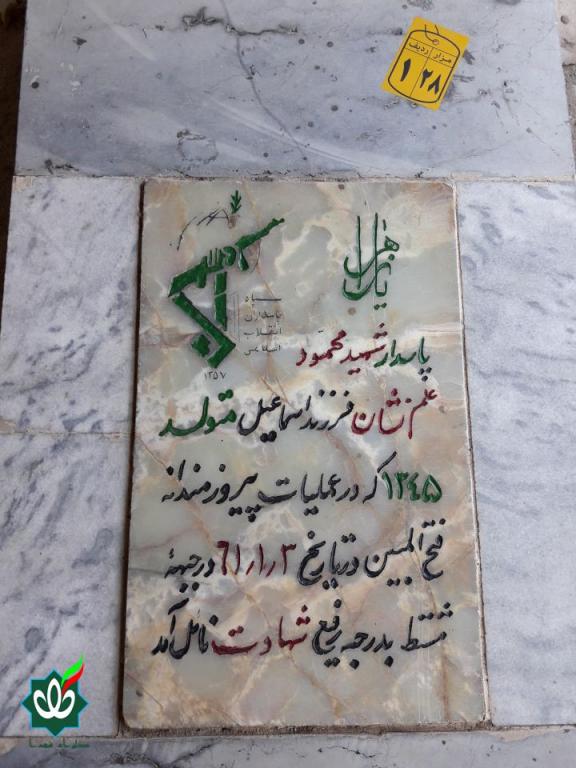 مزار ردیف
۱ ۲۸
یا زهرا
سپاه
پاسداران
انقلاب
اسلامی
۱۳۵۷
پاسدار شهید محمود
علم نشان فرزند اسماعیل متولد
۱۳۴۵ که در عملیات پیروزمندانه
فتح المبین در تاریخ ۶۱٫۱٫۳ در جبهه
بدرجه رفیع شهادت نائل آمد